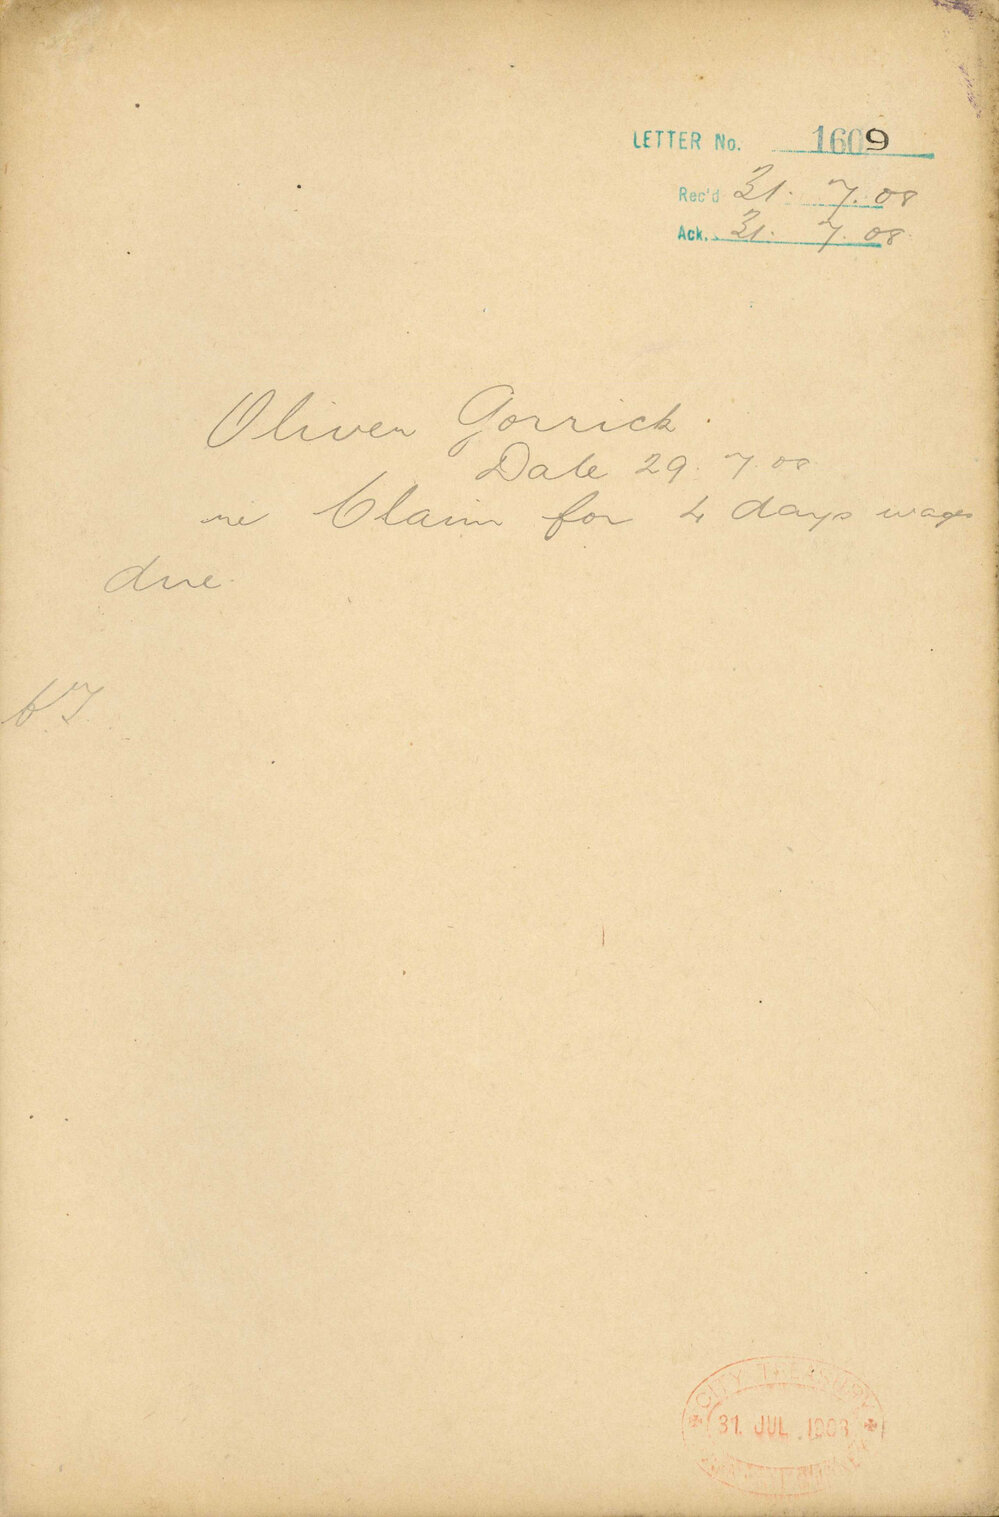 LETTER No. 1609
Rec'd 31. 7. 08
Ack. 31. 7. 08
Oliver Gorrick.
Date 29. 7. 08
re Claim for 4 days wages
due.
CITY TREASURY
31. JUL. 1908